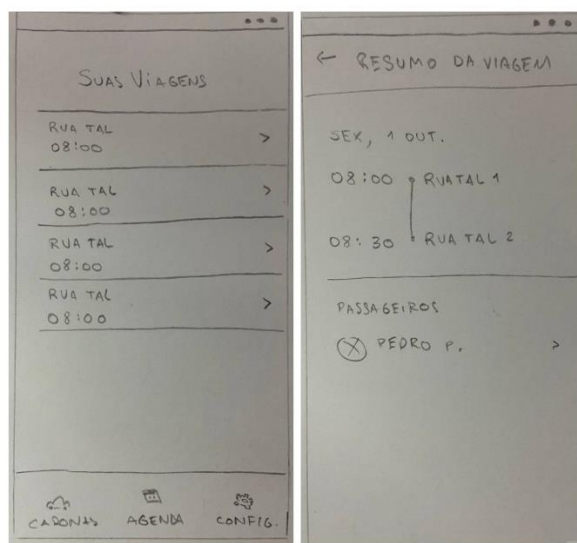 SUAS VIAGENS
RUA TAL
08:00
>
RUA TAL
08:00
>
RUA TAL
08:00
>
RUA TAL
08:00
>
CARONAS AGENDA CONFIG.
← RESUMO DA VIAGEM
SEX, 1 OUT.
08:00 RUA TAL 1
08:30 RUA TAL 2
PASSAGEIROS
PEDRO P. >